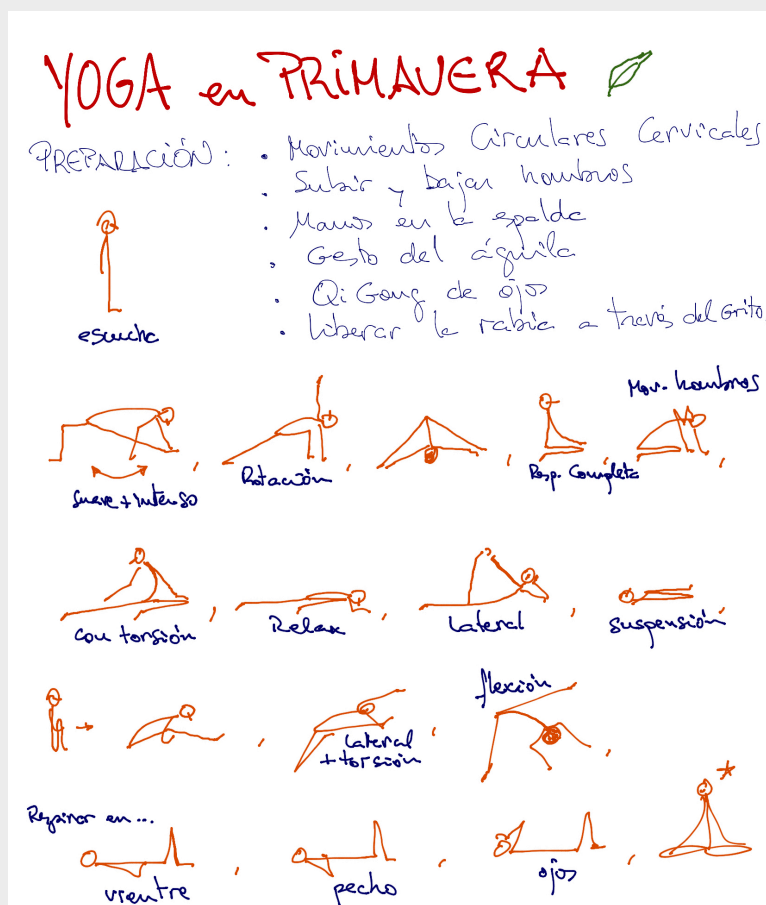 YOGA en PRIMAVERA
PREPARACIÓN: . Movimientos Circulares Cervicales
. Subir y bajar hombros
. Manos en la espalda
. Gesto del águila
. Qi Gong de ojos
. Liberar la rabia a través del Grito
escucha
Mov. hombros
suave + intenso
Rotación
Resp. Completa
con torsión
Relax
Lateral
suspensión
flexión
Lateral
+ torsión
Respirar en...
vientre
pecho
ojos